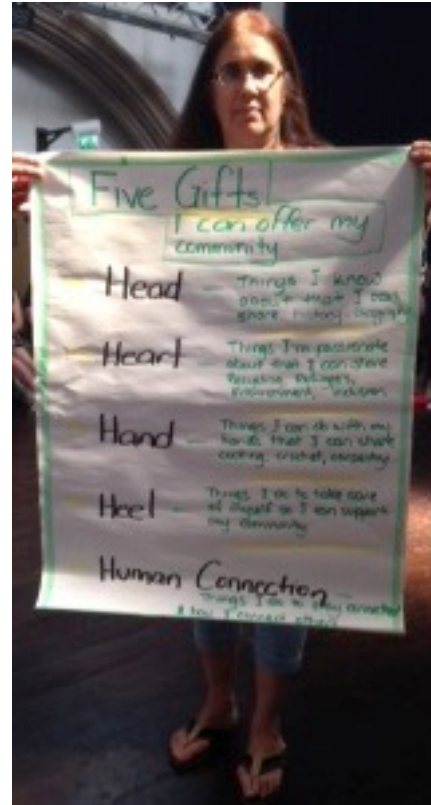 Five Gifts
I can offer my
community
Head — Things I know
about that I can
share history,
Heart — Things I'm passionate
about that I can share
Refugees,
Environment, inclusion
Hand — Things I can do with my
hands that I can share
cooking, crochet, carpentry
Heel — Things I do to take care
of myself so I can support
my community
Human Connection —
Things I do to stay connected
& how I connect others